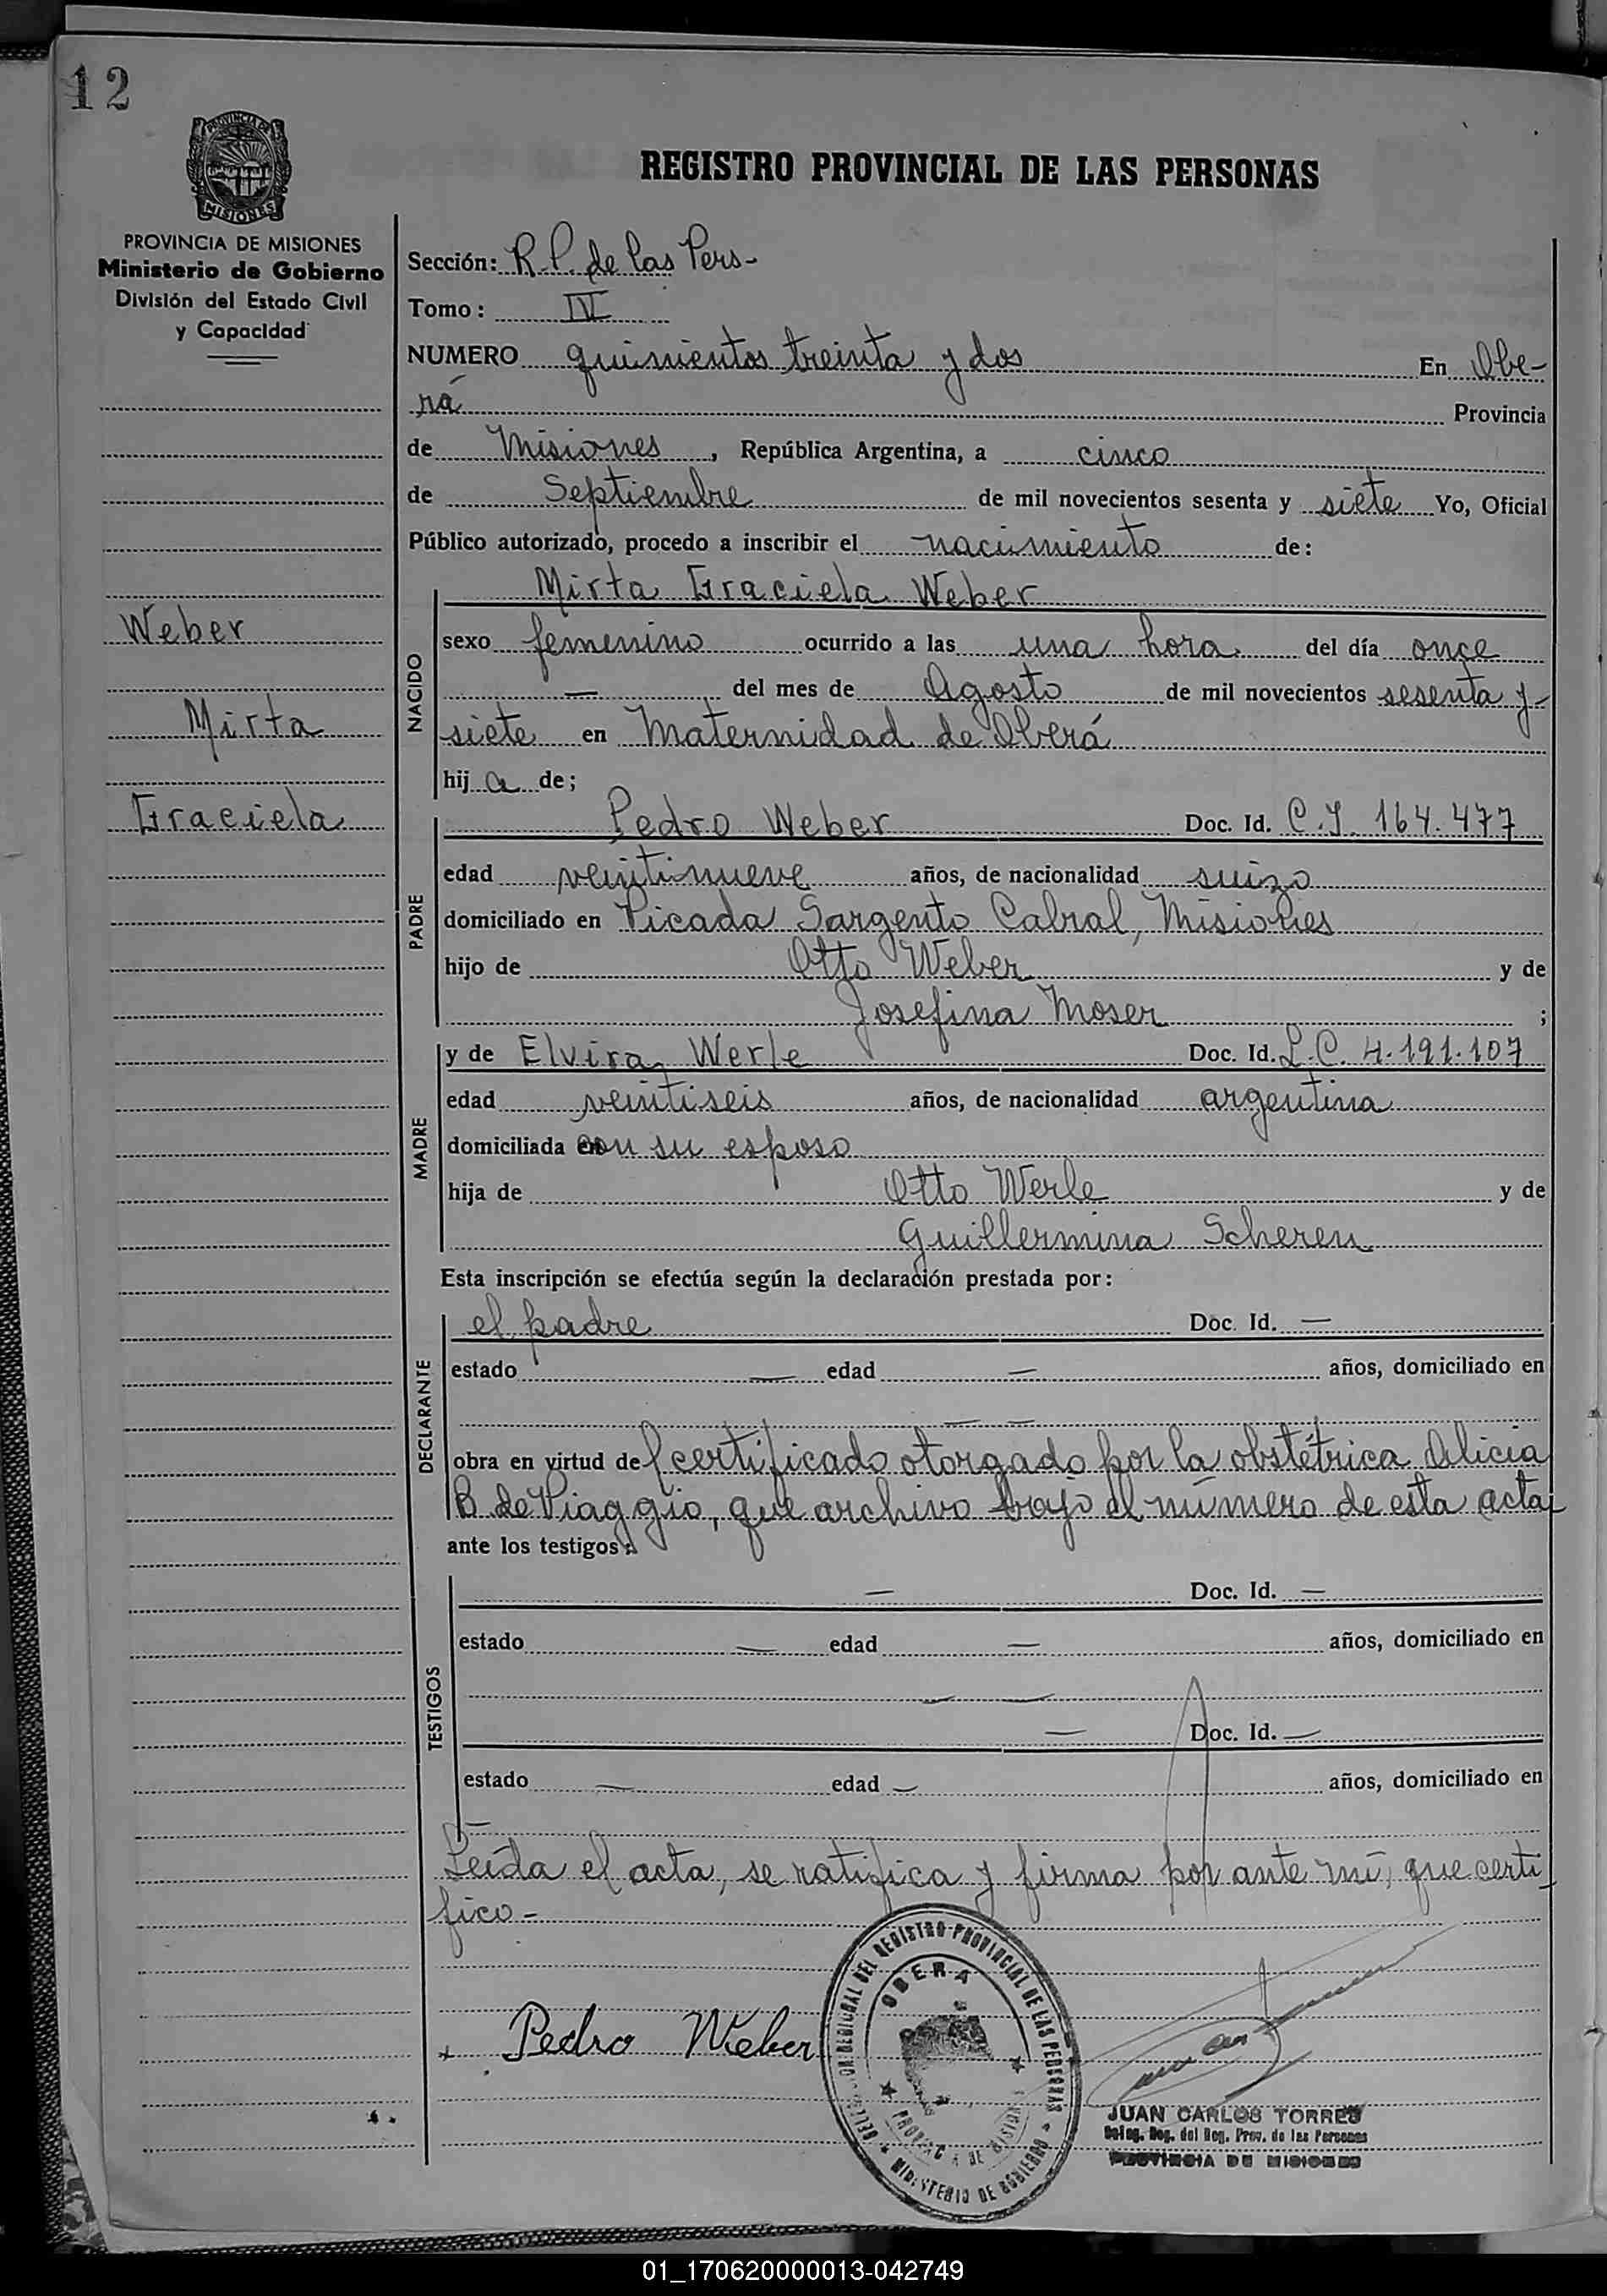 12
PROVINCIA DE
MISIONES
REGISTRO PROVINCIAL DE LAS PERSONAS
PROVINCIA DE MISIONES
Ministerio de Gobierno
División del Estado Civil
y Capacidad
Sección: R.P. de las Pers-
Tomo: IV
NUMERO quinientos treinta y dos En Obe-
rá Provincia
de Misiones, República Argentina, a cinco
de Septiembre de mil novecientos sesenta y siete Yo, Oficial
Público autorizado, procedo a inscribir el nacimiento de:
Mirta Graciela Weber
Weber
Mirta
Graciela
NACIDO
sexo femenino ocurrido a las una hora del día once
— del mes de Agosto de mil novecientos sesenta y
siete en Maternidad de Oberá
hija de;
PADRE
Pedro Weber Doc. Id. C.I. 164.477
edad veintinueve años, de nacionalidad suizo
domiciliado en Picada Sargento Cabral, Misiones
hijo de Otto Weber y de
Josefina Moser ;
MADRE
y de Elvira Werle Doc. Id. L.C. 4.191.107
edad veintiseis años, de nacionalidad argentina
domiciliada en con su esposo
hija de Otto Werle y de
Guillermina Scheren
Esta inscripción se efectúa según la declaración prestada por:
DECLARANTE
el padre Doc. Id. —
estado — edad — años, domiciliado en
— —
obra en virtud de certificado otorgado por la obstétrica Alicia
B. de Viaggio, que archivo bajo el número de esta acta;
ante los testigos:
TESTIGOS
— Doc. Id. —
estado — edad — años, domiciliado en
— —
— Doc. Id. —
estado — edad — años, domiciliado en
—
Leída el acta, se ratifica y firma por ante mí, que certi-
fico-
Pedro Weber
DEL REGISTRO PROVINCIAL DE LAS PERSONAS
OBERA
MINISTERIO DE GOBIERNO
JUAN CARLOS TORRES
Deleg. Reg. del Reg. Prov. de las Personas
PROVINCIA DE MISIONES
01_170620000013-042749